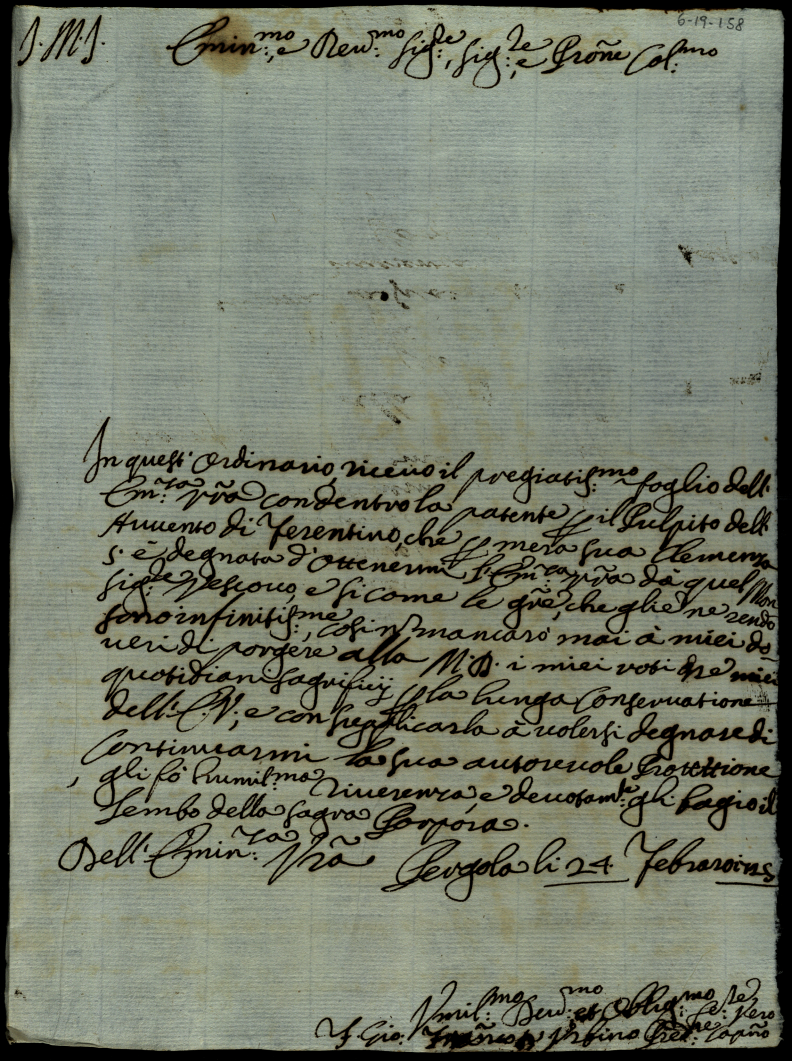 6-19-158
J. M. J.
Emin:mo, e Reu:mo Sig:re, Sig:re, e Prone Col:mo
In quest' Ordinario, riceuo il pregiatis:mo foglio dell'
Em:za Vra con dentro la patente p il Pulpito dell'
Auuento di Ferentino, che p mera sua Clemenza
s' è degnata d' ottenermi l' Em:za Vra dà quel Mon
Sig:re Vescouo, e si come le grẽ, che gliè ne rendo
sono infinitis:me, cosi nõ mancarò mai à miei do
ueri di porgere alla M. D. i miei voti ne miei
quotidiani sagrificij p la lunga Conseruatione
dell' E. V., e con supplicarla à volersi degnare di
Continuarmi la sua autoreuole Protettione
gli fò humil:ma riuerenza, e deuotam:te gli bagio il
Lembo della sagra Porpora.
Dell' Emin:za Vrã Pergola li 24 Febraro
Vmil:mo Deu:mo et Oblig:mo Se:re Vero
F. Gio: Urbino